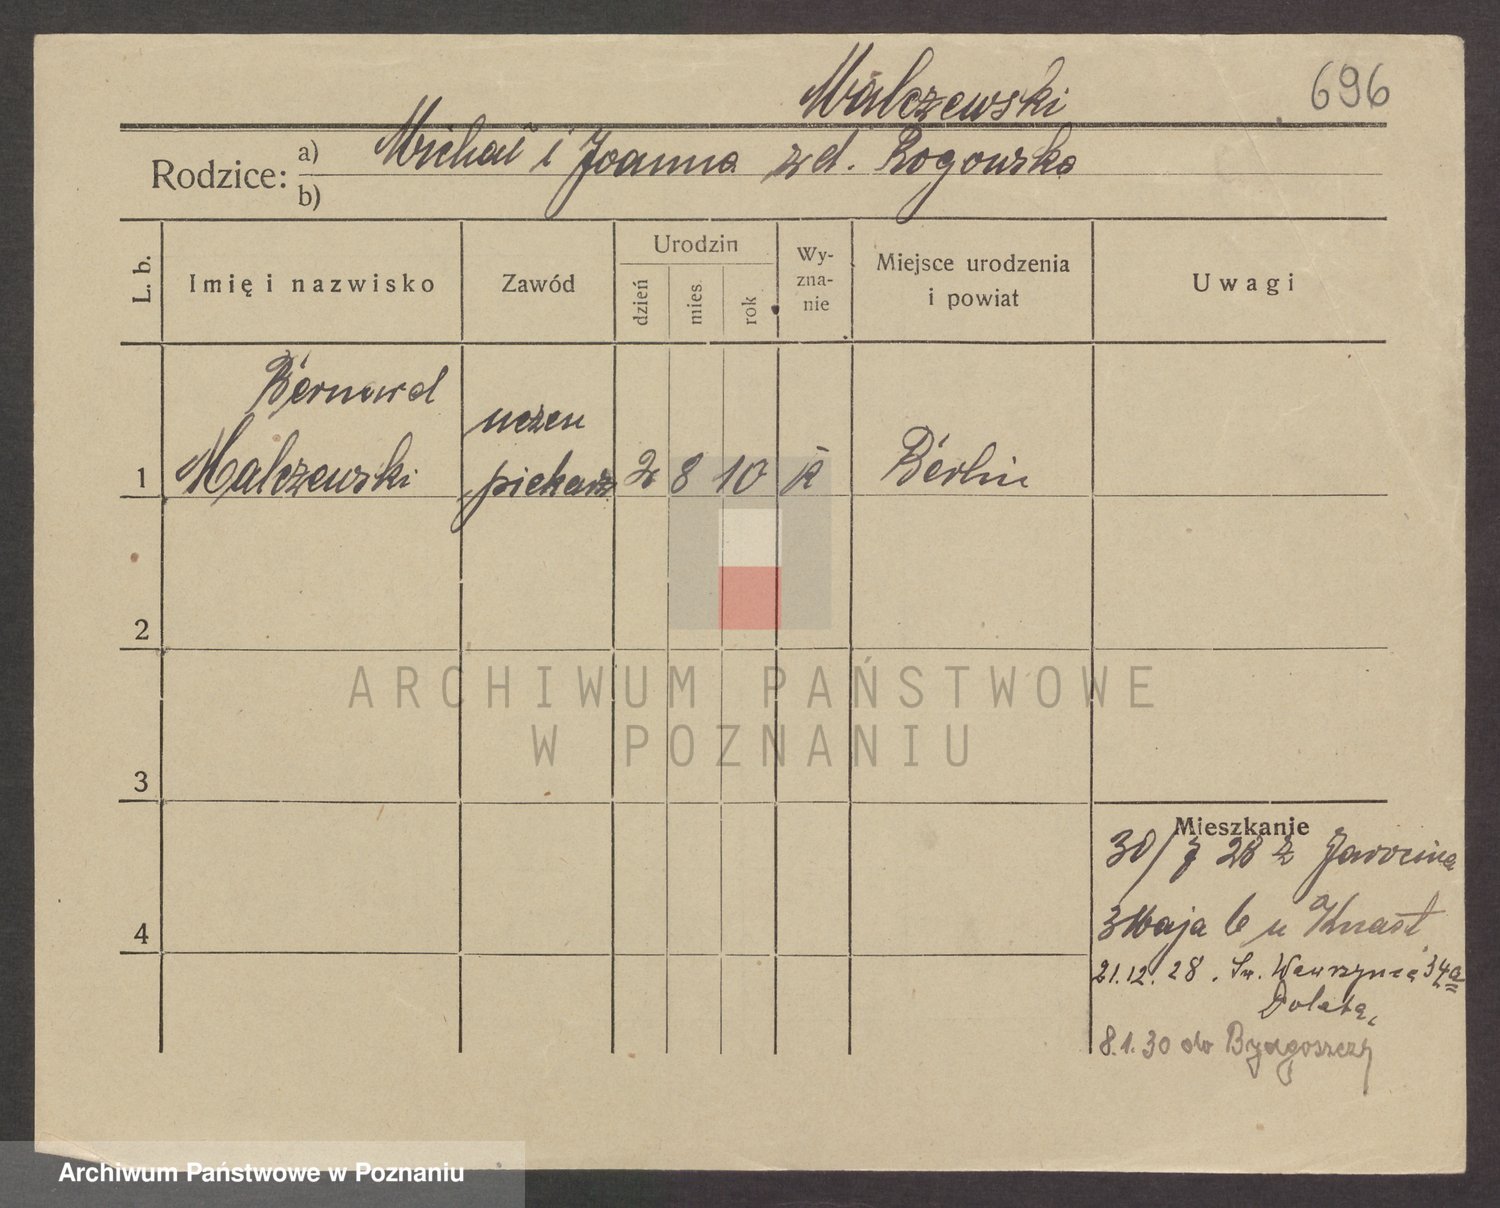 696
Malczewski
Rodzice: a) Michał i Joanna zd. Rogowska
b)
L. b.
Imię i nazwisko
Zawód
Urodzin
dzień
mies.
rok
Wy-
zna-
nie
Miejsce urodzenia
i powiat
Uwagi
1
Bernard
Malczewski
uczeń
piekarz
2 8 10
k
Berlin
2
3
4
Mieszkanie
30/7 28 z Jarocina
3 Maja 6 u Knast
21.12.28. Św. Wawrzyńca 34a
8.1.30 do Bydgoszczy
ARCHIWUM PAŃSTWOWE
W POZNANIU
Archiwum Państwowe w Poznaniu